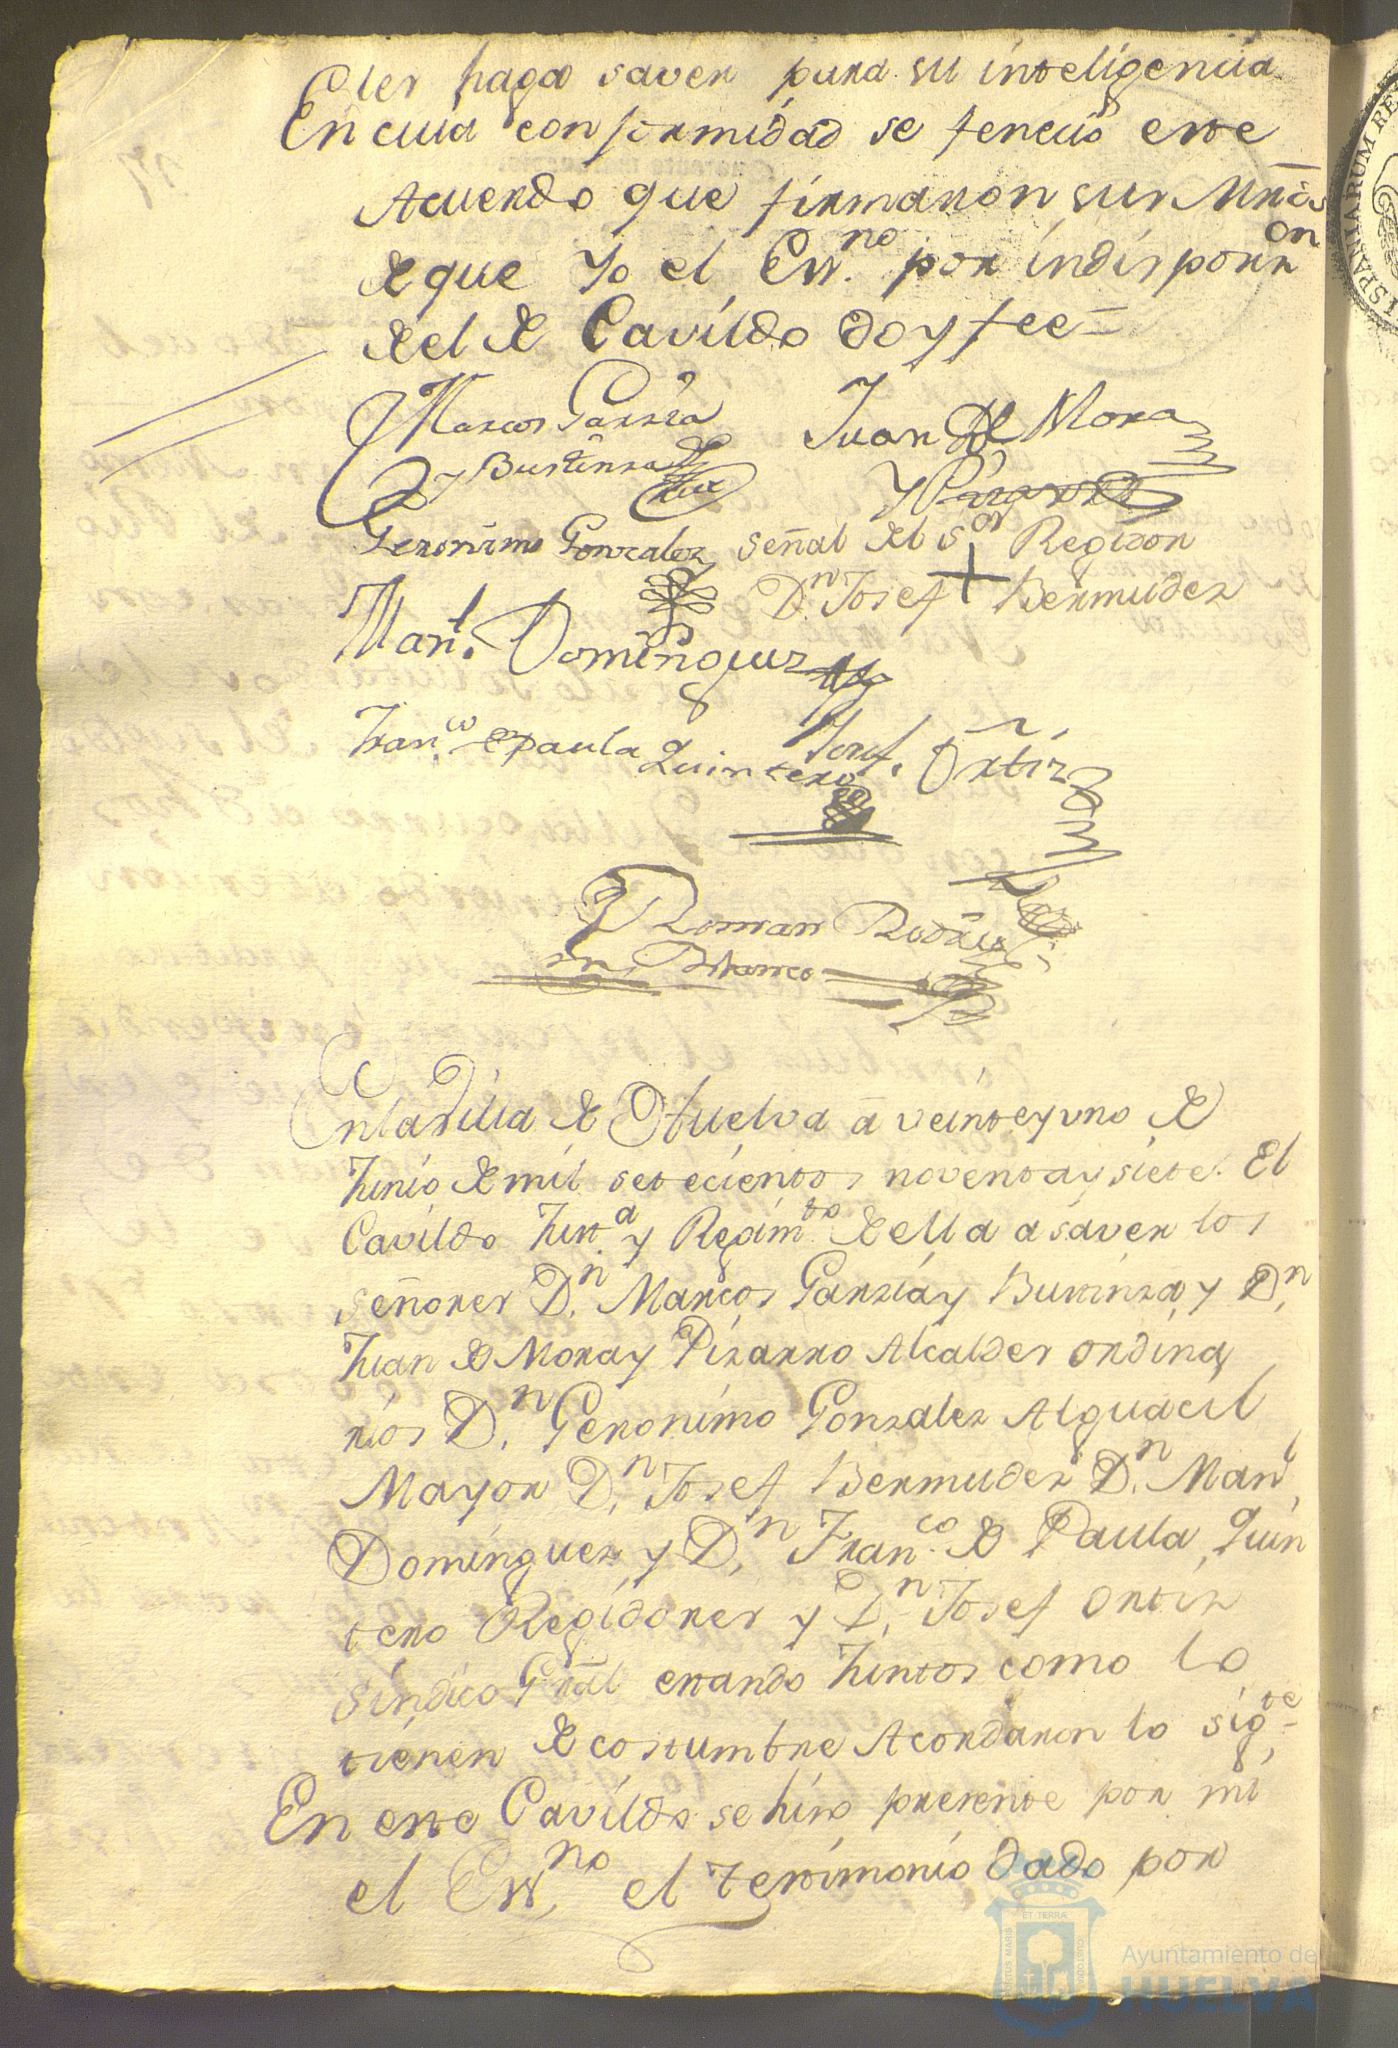 les haga saver para su inteligencia
En cuia conformidad se fencio este
Acuerdo que firmaron sus Mrds
de que Yo el Essno. por indisposn
del de Cavildo doy fee=
Marcos Garzia
y Bustinza
Juan de Mora
y Pizarro
Geronimo Gonzalez
señal del Sor Regidor
Dn Josef + Bermudez
Manl. Dominguez
Franco. de Paula Quintero
Josef. Ortiz
Roman Rodrigz
Blanco
En la Villa de Huelva â veinte y uno de
Junio de mil setecientos noventa y siete. El
Cavildo Justa. y Regimto. de ella a saver los
señores Dn. Marcos Garzia y Bustinza, y Dn.
Juan de Mora y Pizarro Alcaldes ordina
rios Dn. Geronimo Gonzalez Alguacil
Mayor Dn. Josef Bermudez Dn. Manl.
Dominguez, y Dn. Franco. de Paula Quin
tero Regidores y Dn. Josef Ortiz
Sindico Grâl estando Juntos como lo
tienen de costumbre Acordaron lo sigte.
En este Cavildo se hizo presente por mi
el Essno. el testimonio dado por
HISPANIARUM RE
ET TERRÆ
Ayuntamiento de
HUELVA